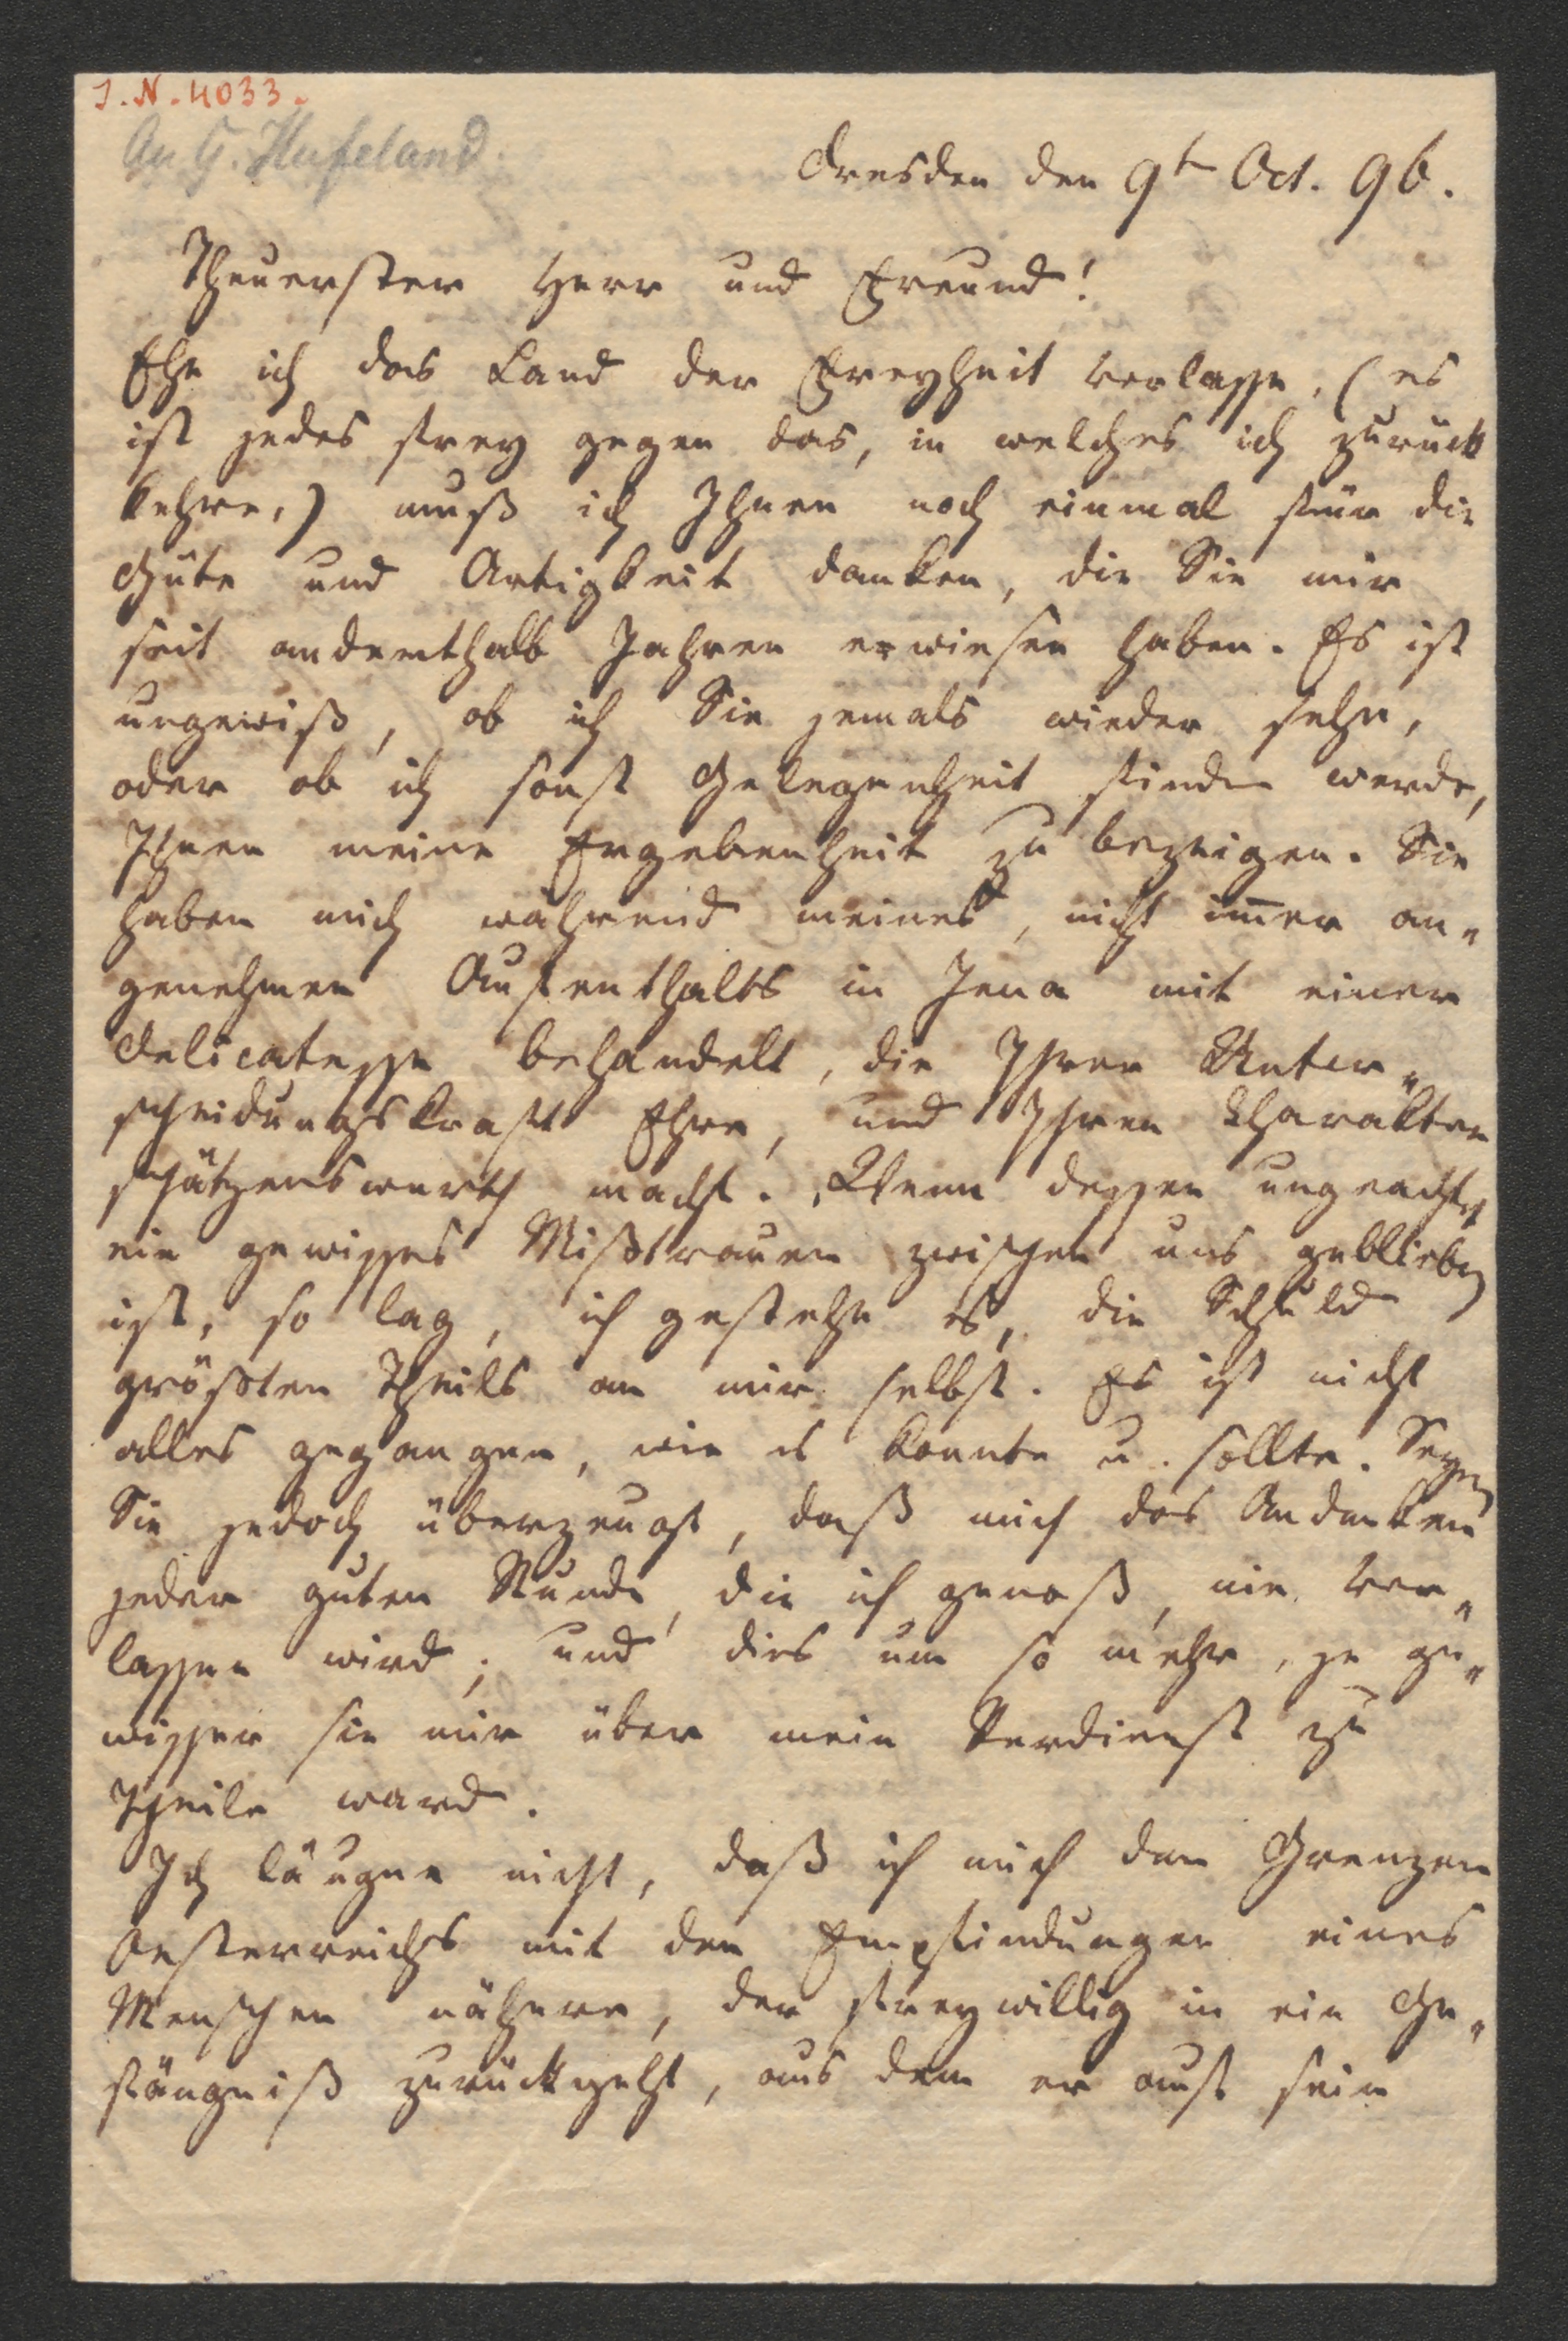 I.N. 4033.
An G. Hufeland
Dresden den 9t Oct. 96.
Theuerster Herr und Freund!
Ehe ich das Land der Freyheit verlasse, (es
ist jedes frey gegen das, in welches ich zurück
kehre,) muß ich Ihnen noch einmal für die
Güte und Artigkeit danken, die Sie mir
seit anderthalb Jahren erwiesen haben. Es ist
ungewiß, ob ich Sie jemals wieder sehe,
oder ob ich sonst Gelegenheit finden werde,
Ihnen meine Ergebenheit zu bezeigen. Sie
haben mich während meines, nicht im̄er an„
genehmen Aufenthalts in Jena mit einer
Delicatesse behandelt, die Ihrer Unter„
scheidungskraft Ehre, und Ihren Charakter
schätzenswerth macht. Wenn dessen ungeachtet
ein gewisses Mißtrauen zwischen uns geblieben
ist, so lag, ich gestehe es, die Schuld
größten Theils an mir selbst. Es ist nicht
alles gegangen, wie es konnte u. sollte. Seyen
Sie jedoch überzeugt, daß mich das Andenken
jeder guten Stunde, die ich genoß, nie ver„
lassen wird; und dies um so mehr, je ge„
wisser sie mir über mein Verdienst zu
Theile ward.
Ich läugne nicht, daß ich mich den Grenzen
Oesterreichs mit den Empfindungen eines
Menschen nähere, der freywillig in ein Ge„
fängniß zurückgeht, aus dem er auf sein